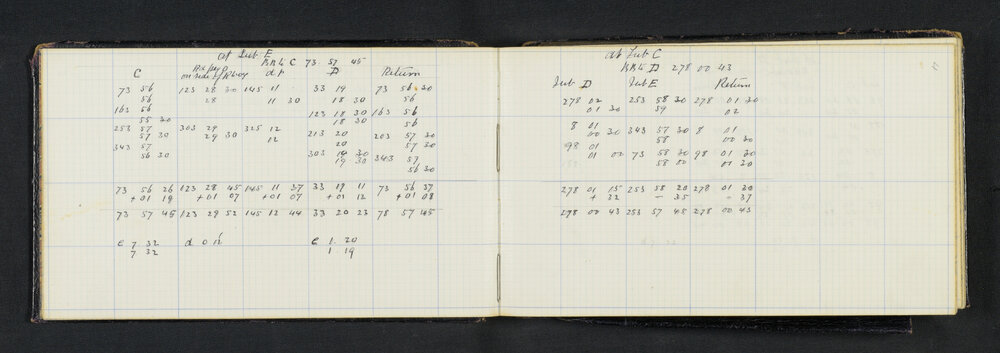 at Sub E
RR to C 73 57 45
C on side of R way dp D Return
73 56 123 28 30 145 11 33 19 73 56 30
56 28 11 30 18 30 56
163 56 123 18 30 163 56
55 30 18 30 56
253 57 303 29 325 12 213 20 203 57 30
57 30 29 30 12 20 57 30
343 57 303 19 30 343 57
56 30 19 30 56 30
73 56 26 123 28 45 145 11 37 33 19 11 73 56 37
+01 19 +01 07 +01 07 +01 12 +01 08
73 57 45 123 29 52 145 12 44 33 20 23 73 57 45
C 7 32 d o n C 1 20
7 32 1 19
at Sub C
RR to D 278 00 43
Sub D Sub E Return
278 02 253 58 30 278 01 30
01 30 59 02
8 01 343 57 30 8 01
00 30 58 00 30
98 01 73 58 30 98 01 30
01 00 58 00 01 30
278 01 15 253 58 20 278 01 20
+ 32 - 35 - 37
278 00 43 253 57 45 278 00 43